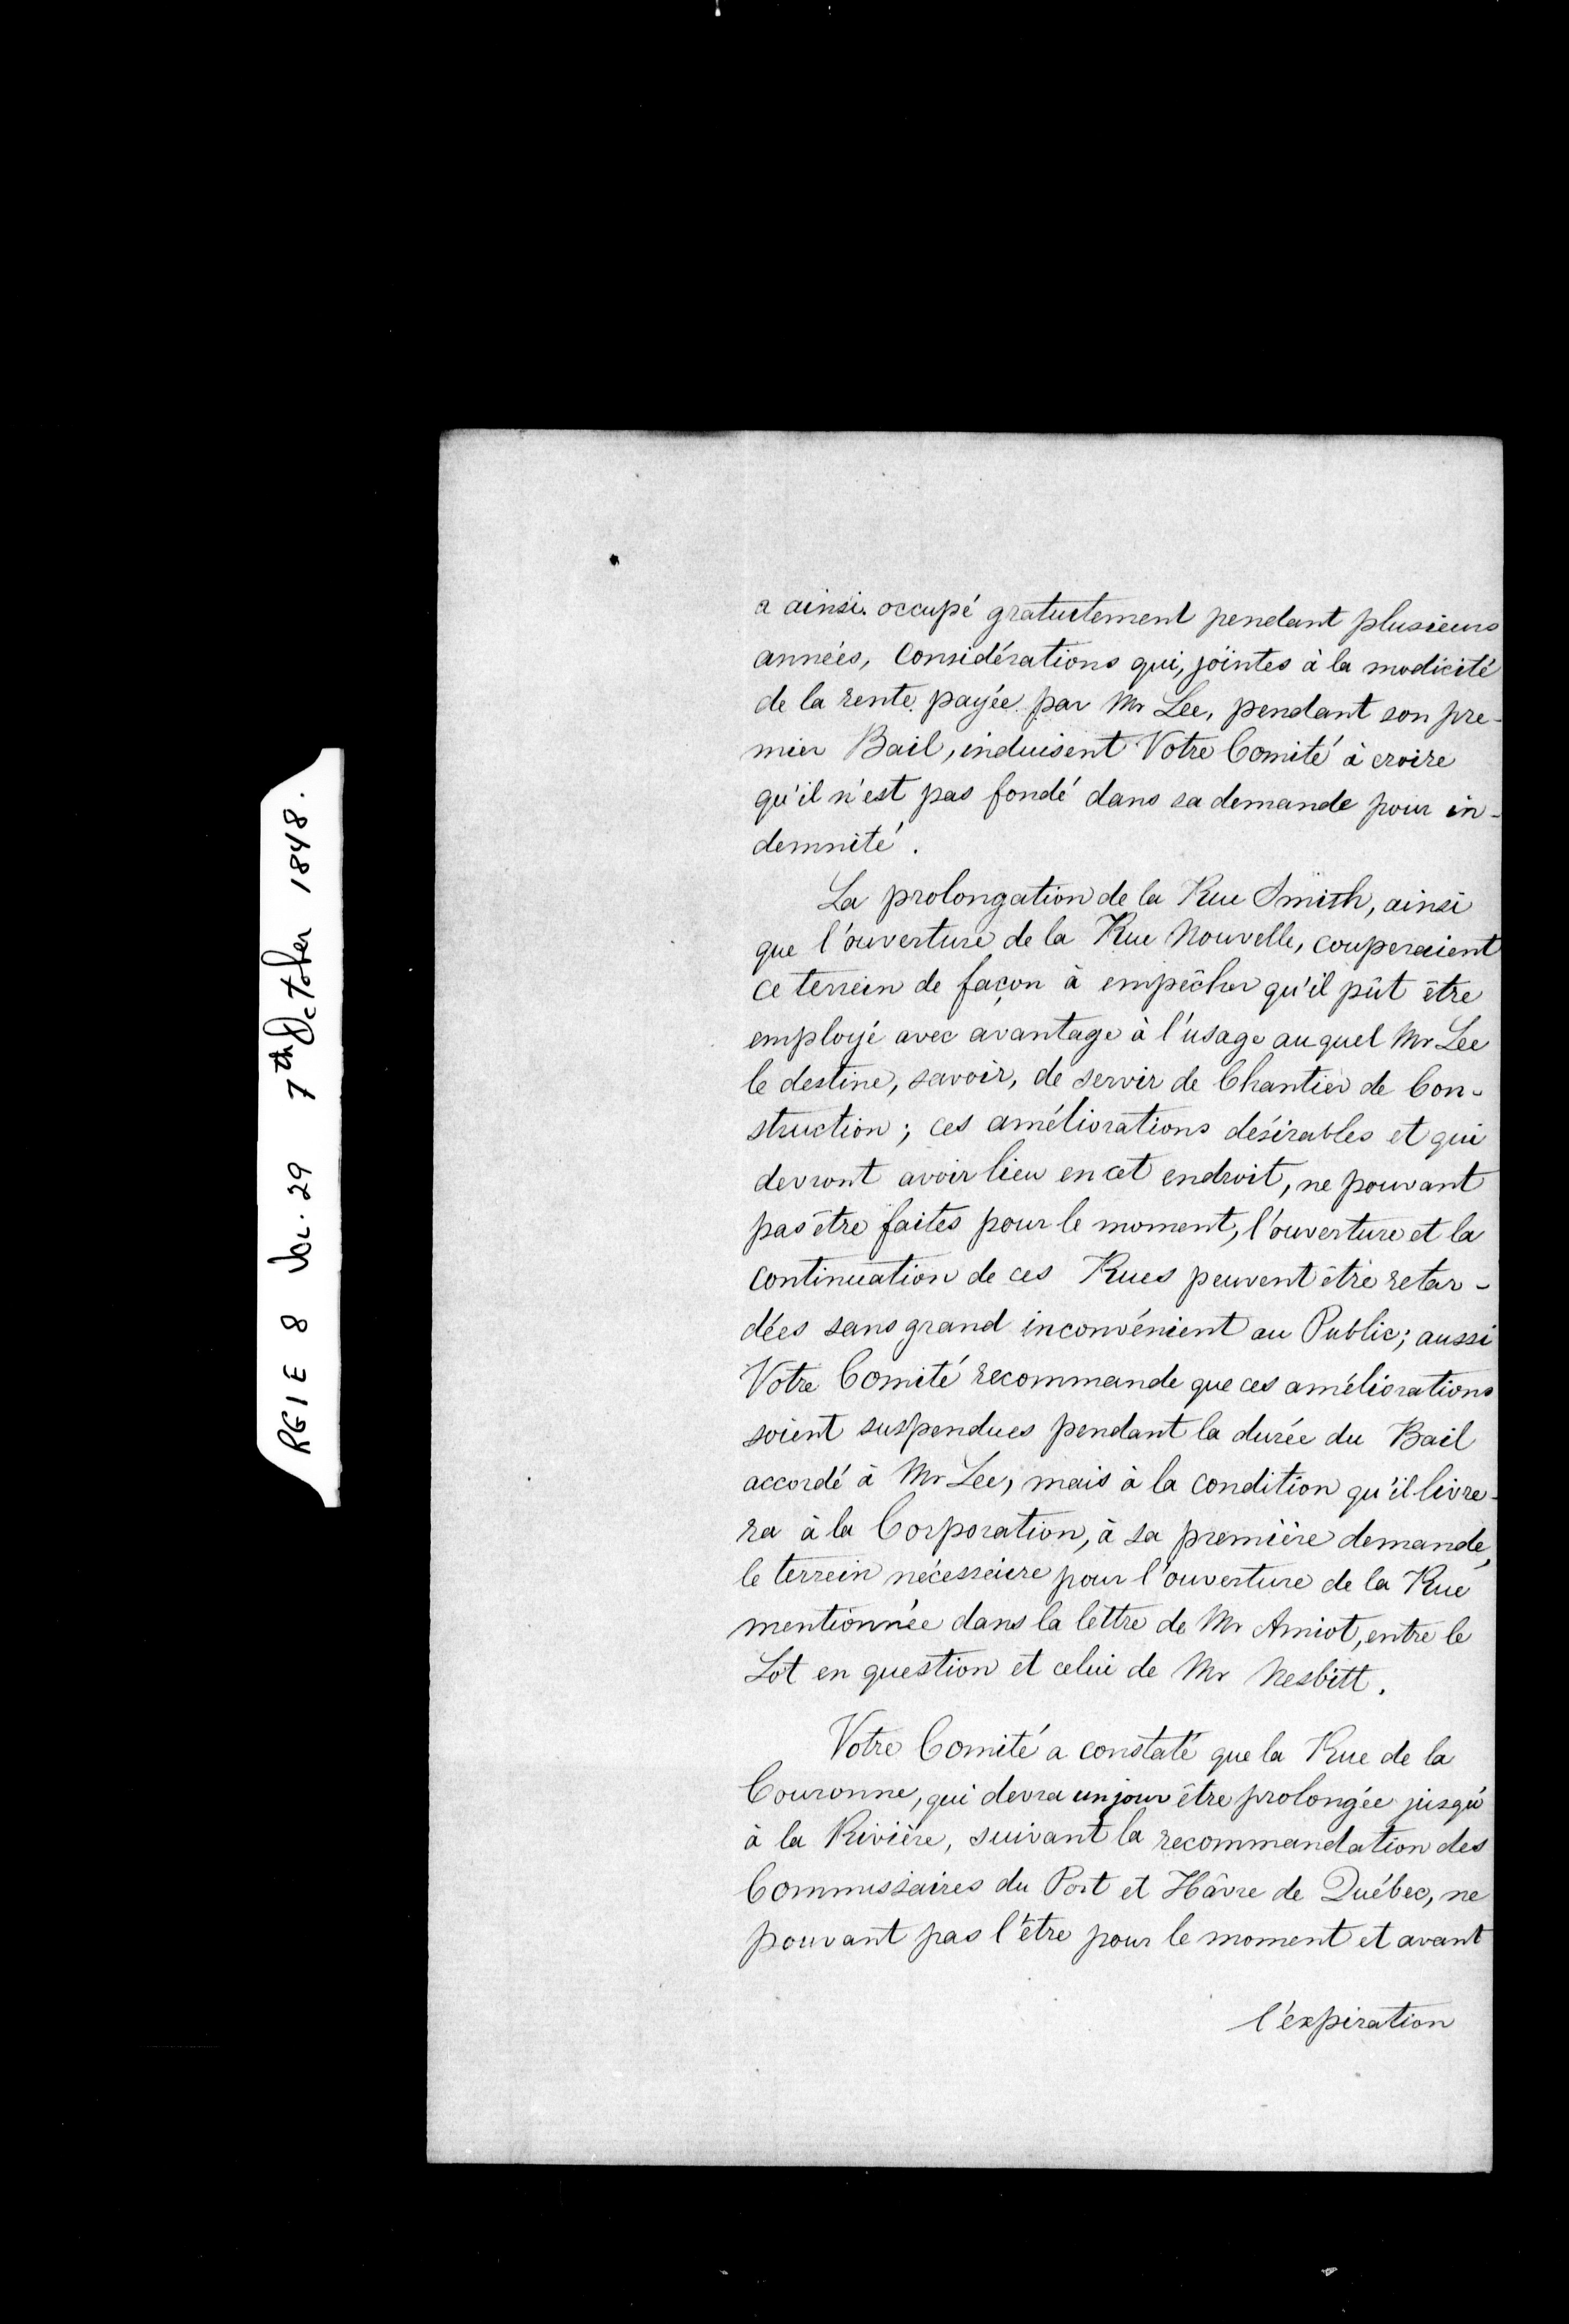 RG1 E 8 Vol. 29 7th October 1848.
a ainsi occupé gratuitement pendant plusieurs
années, Considérations qui, jointes à la modicité
de la rente payée par Mr Lee, pendant son pre-
mier Bail, induisent Votre Comité à croire
qu'il n'est pas fondé dans sa demande pour in-
demnité.
La prolongation de la Rue Smith, ainsi
que l'ouverture de la Rue Nouvelle, couperaient
ce terrein de façon à empêcher qu'il pût être
employé avec avantage à l'usage auquel Mr Lee
le destine, savoir, de servir de Chantier de Con-
struction; ces améliorations désirables et qui
devront avoir lieu en cet endroit, ne pouvant
pas être faites pour le moment, l'ouverture et la
continuation de ces Rues peuvent être retar-
dées sans grand inconvénient au Public; aussi
Votre Comité recommande que ces améliorations
soient suspendues pendant la durée du Bail
accordé à Mr Lee, mais à la condition qu'il livre-
ra à la Corporation, à sa première demande,
le terrein nécessaire pour l'ouverture de la Rue
mentionnée dans la lettre de Mr Amiot, entre le
Lot en question et celui de Mr Nesbitt.
Votre Comité a constaté que la Rue de la
Couronne, qui devra un jour être prolongée jusqu'
à la Rivière, suivant la recommandation des
Commissaires du Port et Hâvre de Québec, ne
pouvant pas l'être pour le moment et avant
l'expiration